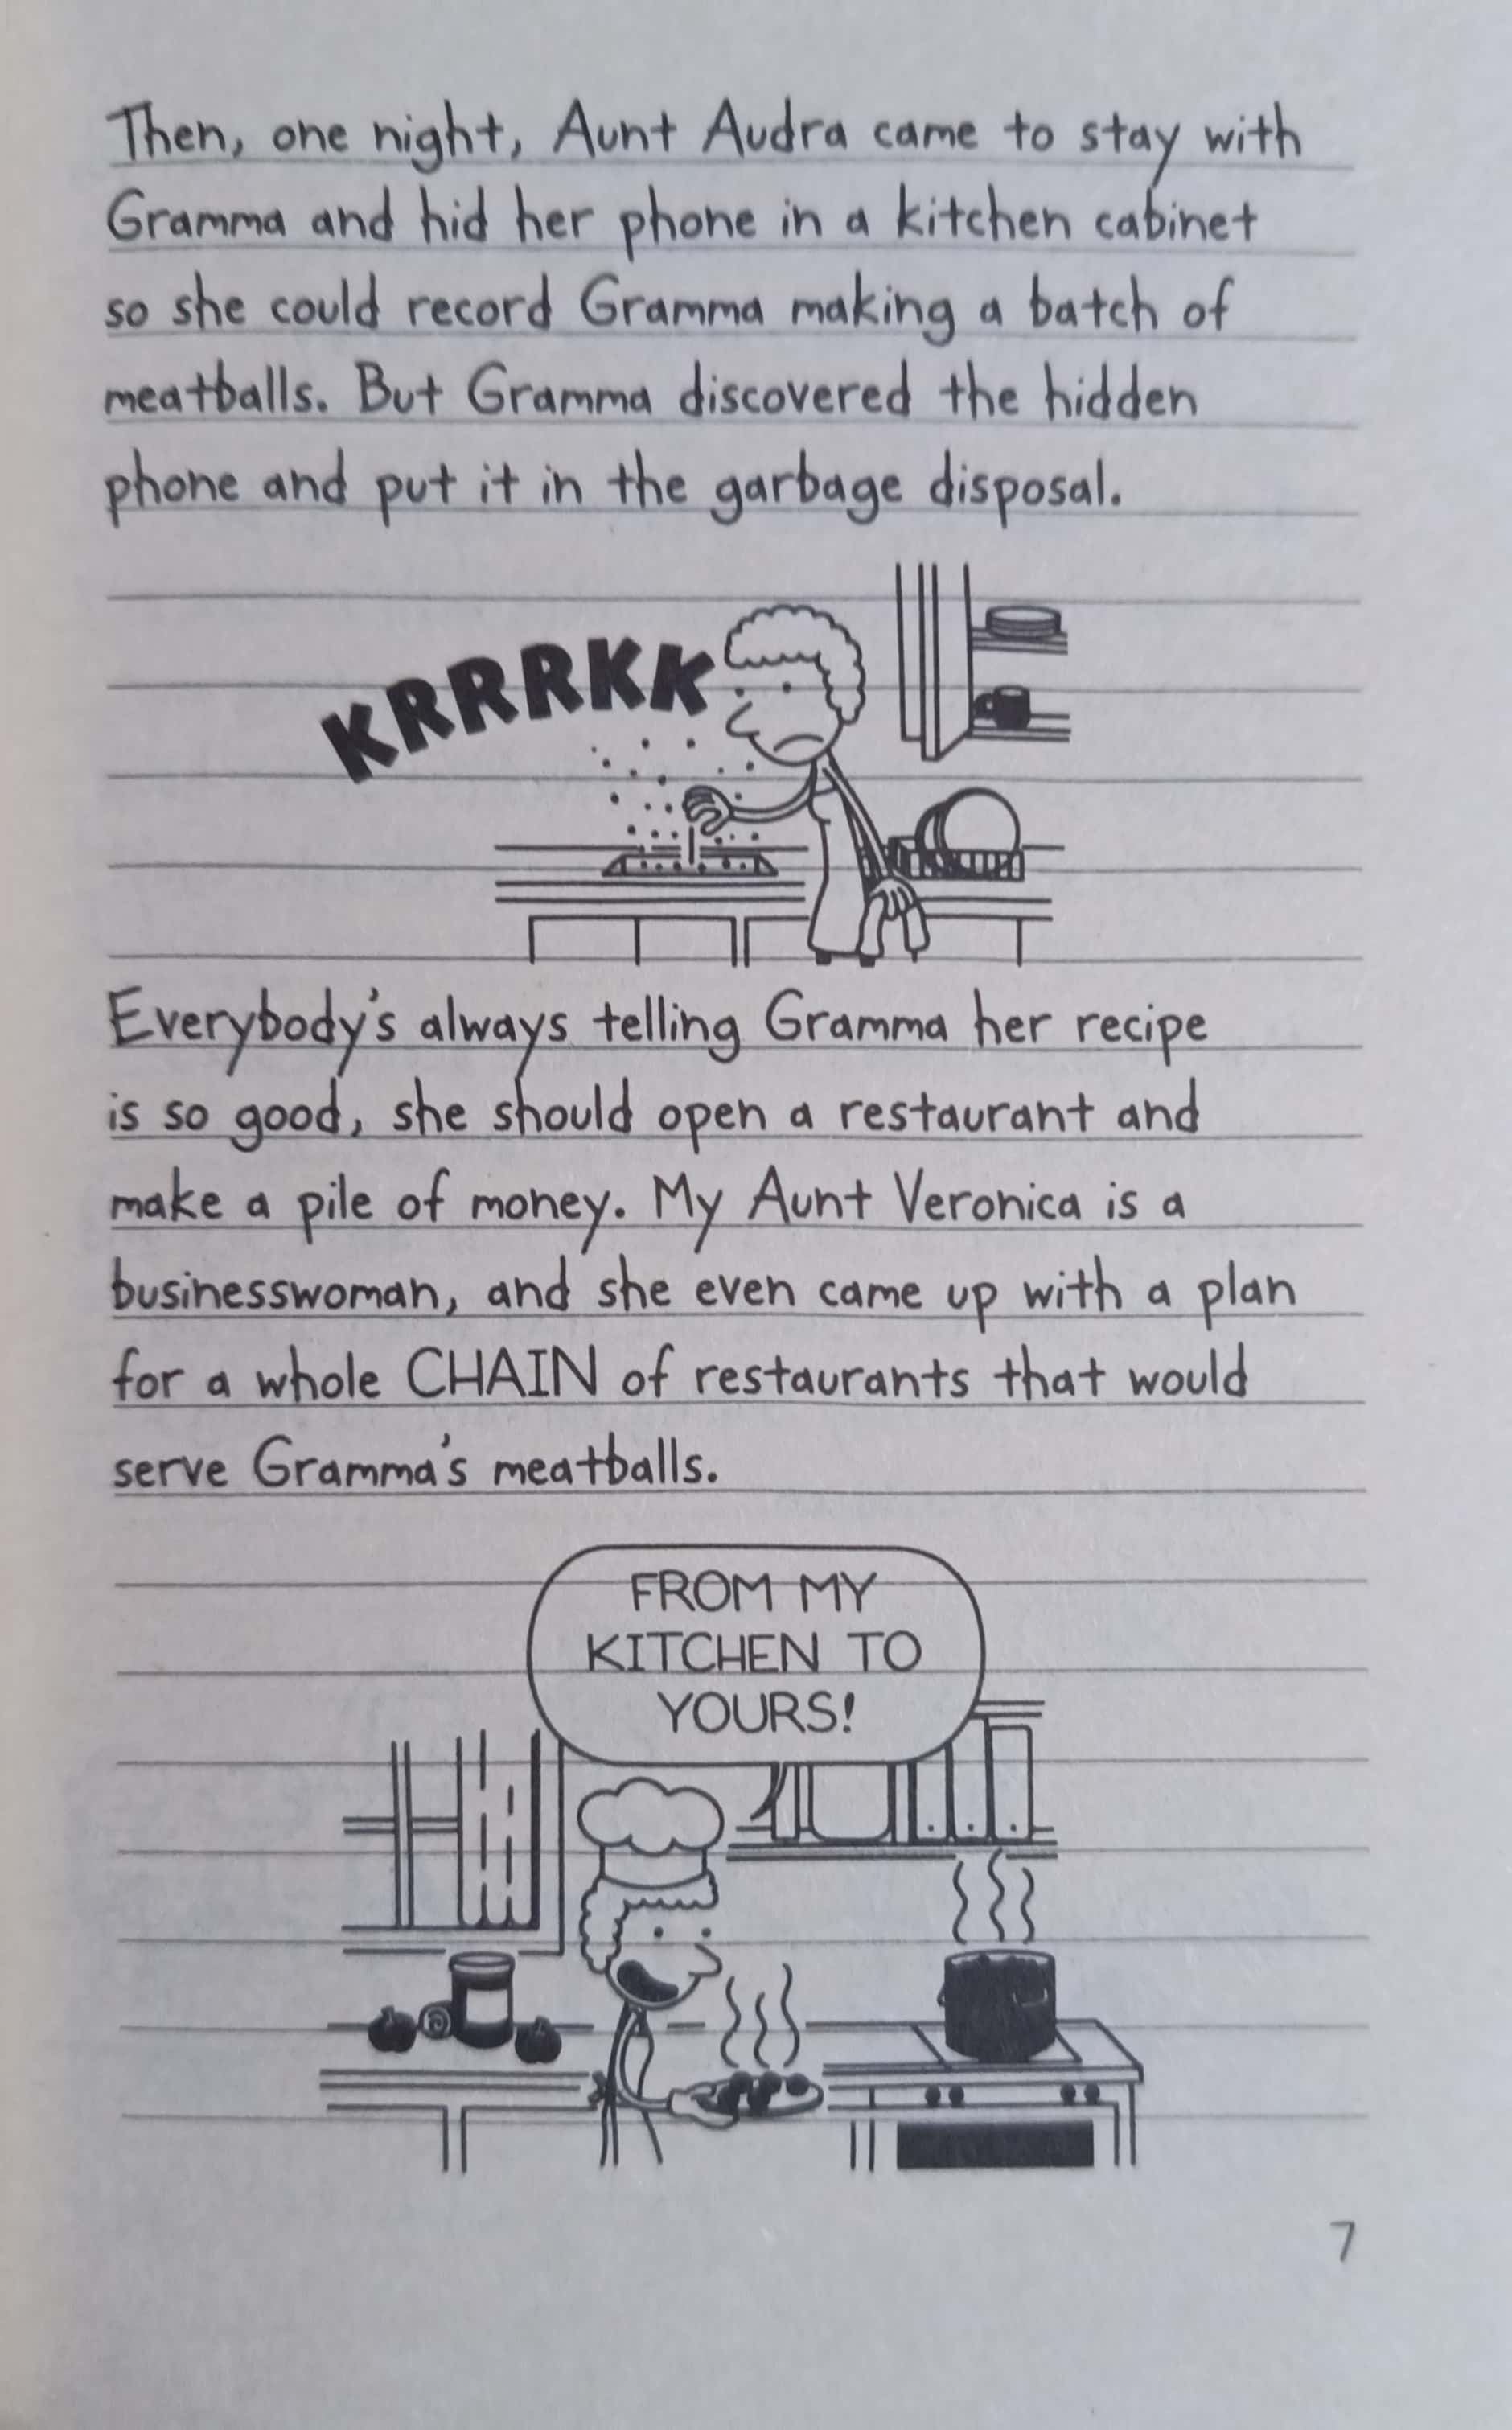 Then, one night, Aunt Audra came to stay with
Gramma and hid her phone in a kitchen cabinet
so she could record Gramma making a batch of
meatballs. But Gramma discovered the hidden
phone and put it in the garbage disposal.
KRRRKK
Everybody's always telling Gramma her recipe
is so good, she should open a restaurant and
make a pile of money. My Aunt Veronica is a
businesswoman, and she even came up with a plan
for a whole CHAIN of restaurants that would
serve Gramma's meatballs.
FROM MY
KITCHEN TO
YOURS!
7